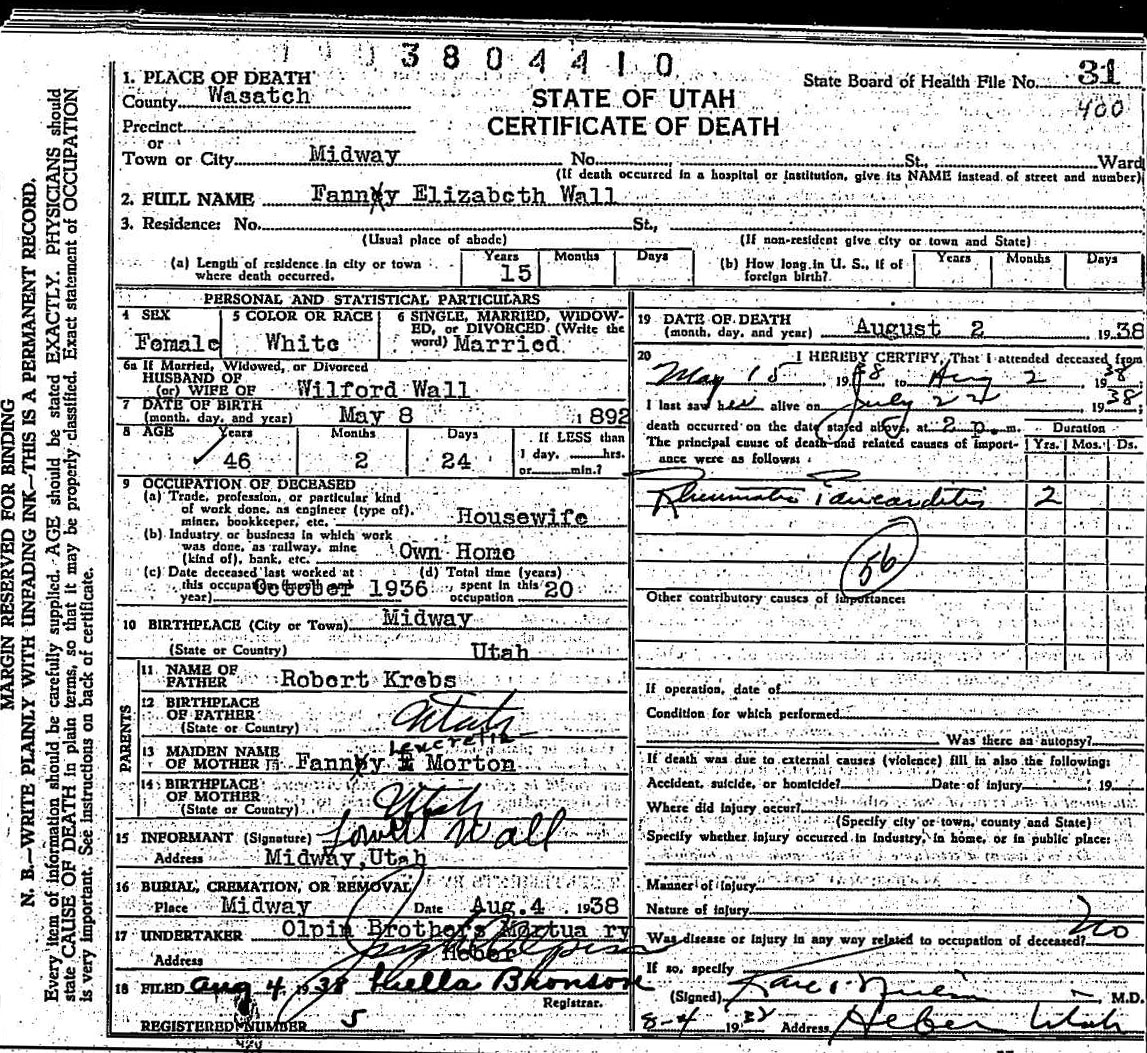 1 9 0 3 8 0 4 4 1 0
State Board of Health File No. 31
400
1. PLACE OF DEATH
County Wasatch
STATE OF UTAH
CERTIFICATE OF DEATH
Precinct
or
Town or City Midway No. St., Ward
(If death occurred in a hospital or institution, give its NAME instead of street and number)
2. FULL NAME Fanny Elizabeth Wall
3. Residence: No. St.,
(Usual place of abode) (If non-resident give city or town and State)
(a) Length of residence in city or town where death occurred. Years 15 Months Days
(b) How long in U. S., if of foreign birth? Years Months Days
PERSONAL AND STATISTICAL PARTICULARS
4 SEX Female
5 COLOR OR RACE White
6 SINGLE, MARRIED, WIDOWED, or DIVORCED (Write the word) Married
6a If Married, Widowed, or Divorced
HUSBAND OF
(or) WIFE OF Wilford Wall
7 DATE OF BIRTH
(month, day, and year) May 8 1892
8 AGE Years 46 Months 2 Days 24 If LESS than 1 day, hrs. or min.?
9 OCCUPATION OF DECEASED
(a) Trade, profession, or particular kind of work done, as engineer (type of), miner, bookkeeper, etc. Housewife
(b) Industry or business in which work was done, as railway, mine (kind of), bank, etc. Own Home
(c) Date deceased last worked at this occupation (month and year) October 1936
(d) Total time (years) spent in this occupation 20
10 BIRTHPLACE (City or Town) Midway
(State or Country) Utah
PARENTS
11 NAME OF FATHER Robert Krebs
12 BIRTHPLACE OF FATHER (State or Country) Utah
13 MAIDEN NAME OF MOTHER Fanny Lucretia Morton
14 BIRTHPLACE OF MOTHER (State or Country) Utah
15 INFORMANT (Signature) Lowell Wall
Address Midway, Utah
16 BURIAL, CREMATION, OR REMOVAL
Place Midway Date Aug. 4 1938
17 UNDERTAKER Olpin Brothers Mortuary
Address Heber
18 FILED Aug 4, 1938 Thella Bronson
Registrar.
REGISTERED NUMBER 5
420
19 DATE OF DEATH
(month, day, and year) August 2 1938
20 I HEREBY CERTIFY, That I attended deceased from
May 15, 1938 to Aug 2 1938
I last saw her alive on July 22 1938
death occurred on the date stated above, at 2 p. m.
The principal cause of death and related causes of importance were as follows: Duration Yrs. Mos. Ds.
Rheumatic 2
56
Other contributory causes of importance:
If operation, date of
Condition for which performed
Was there an autopsy?
If death was due to external causes (violence) fill in also the following:
Accident, suicide, or homicide? Date of injury 19
Where did injury occur?
(Specify city or town, county and State)
Specify whether injury occurred in industry, in home, or in public place:
Manner of injury
Nature of injury
Was disease or injury in any way related to occupation of deceased? No
If so, specify
(Signed) M.D.
8-4 1938 Address Heber Utah
MARGIN RESERVED FOR BINDING
N. B.—WRITE PLAINLY WITH UNFADING INK—THIS IS A PERMANENT RECORD.
Every item of information should be carefully supplied. AGE should be stated EXACTLY. PHYSICIANS should
state CAUSE OF DEATH in plain terms, so that it may be properly classified. Exact statement of OCCUPATION
is very important. See instructions on back of certificate.